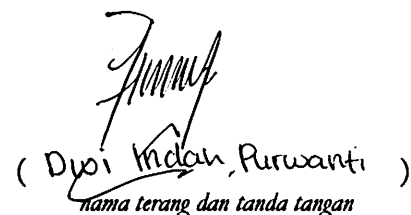 ( Dwi Indah Purwanti )
nama terang dan tanda tangan